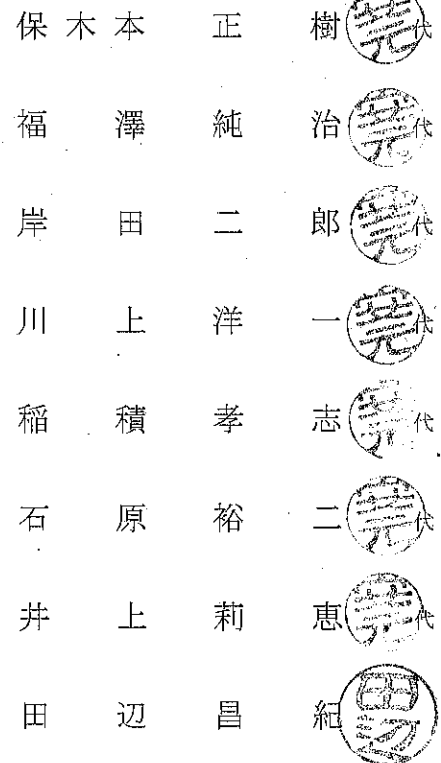 保木本正樹 代
福澤純治 代
岸田二郎 代
川上洋一 代
稲積孝志 代
石原裕二 代
井上莉恵 代
田辺昌紀 田辺